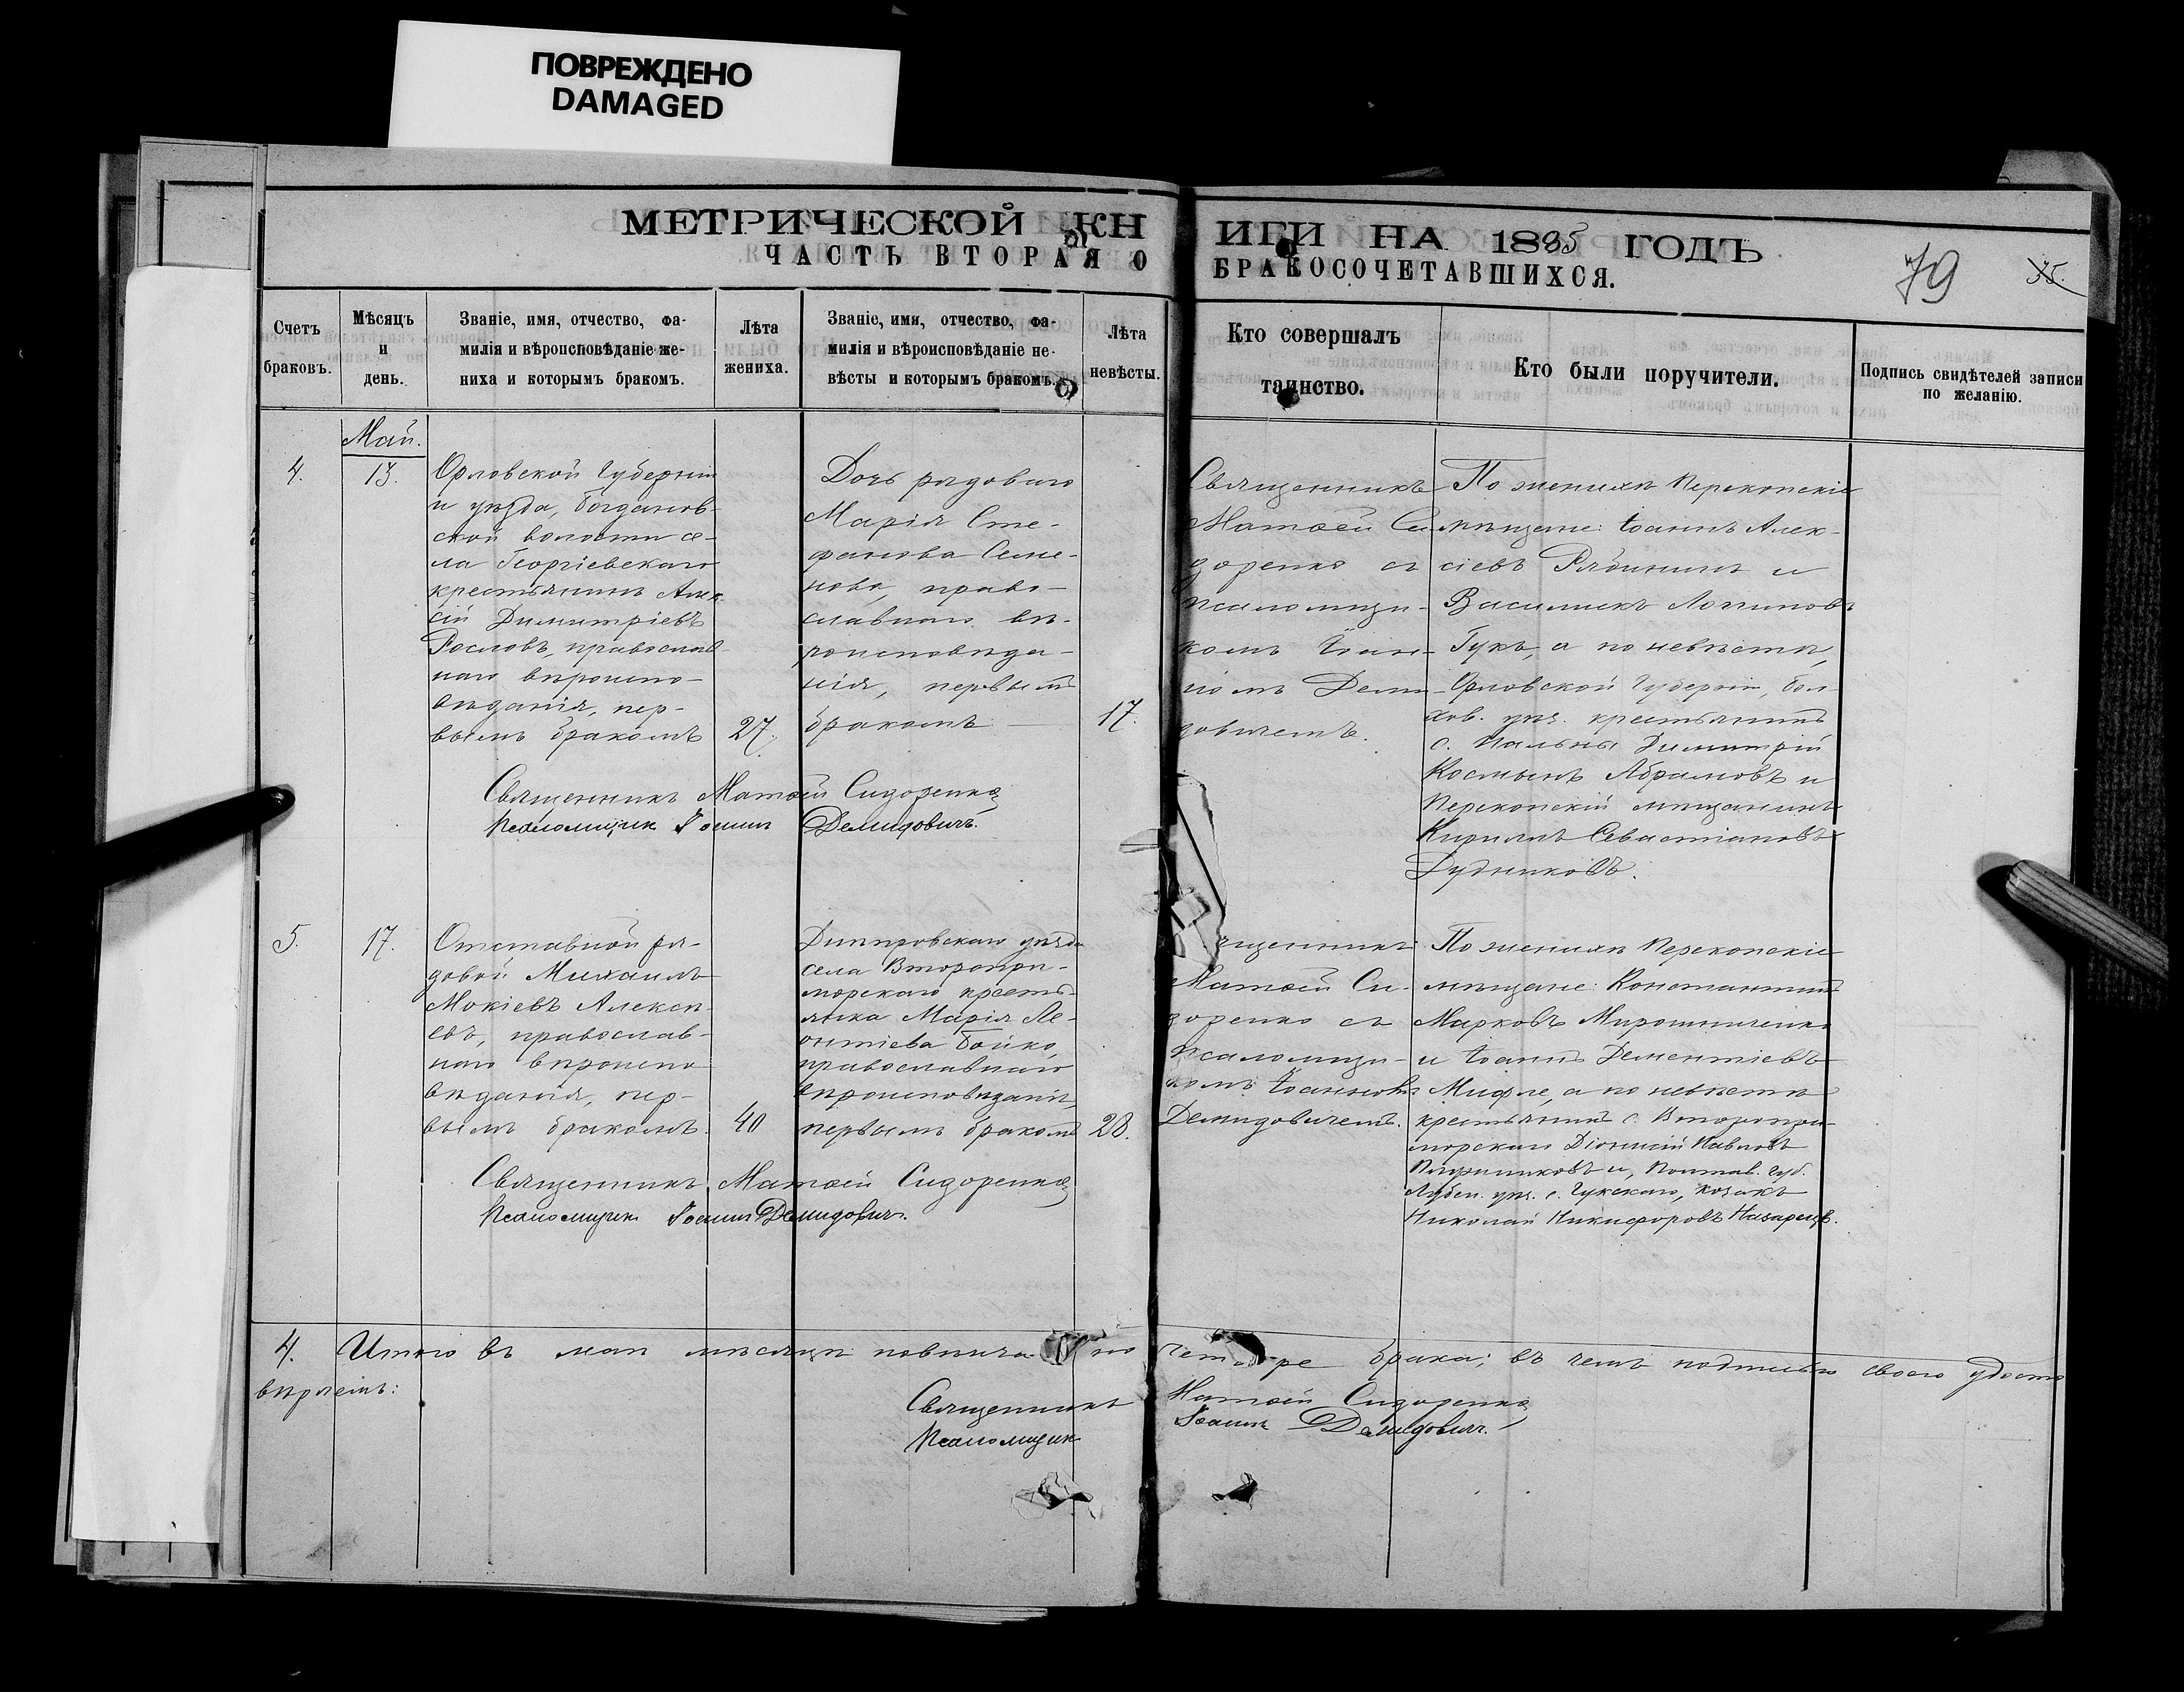 ПОВРЕЖДЕНО
DAMAGED
МЕТРИЧЕСКОЙ КН
ИГИ НА 1885 ГОДЪ
ЧАСТЬ ВТОРАЯ О
БРАКОСОЧЕТАВШИХСЯ.
79
35.
Счетъ
браковъ.
Мѣсяцъ
и
день.
Званіе, имя, отчество, фа-
милія и вѣроисповѣданіе же-
ниха и которымъ бракомъ.
Лѣта
жениха.
Званіе, имя, отчество, фа-
милія и вѣроисповѣданіе не-
вѣсты и которымъ бракомъ.
Лѣта
невѣсты.
Кто совершалъ
таинство.
Кто были поручители.
Подпись свидѣтелей записи
по желанію.
Май.
4.
13.
Орловской Губерніи
и уѣзда, Богданов-
ской волости се-
ла Георгіевскаго
крестьянинъ Алек-
сій Димитріевъ
Рословъ, православ-
наго вѣроиспо-
вѣданія, пер-
вымъ бракомъ
27.
Дочь рядового
Марія Сте-
фанова Семе-
нова, право-
славнаго вѣ-
роисповѣда-
нія, первымъ
бракомъ
17.
Священникъ
Матѳей Си-
доренко съ
псаломщи-
комъ Іоан-
номъ Деми-
довичемъ.
По женихѣ Перекопскіе
мѣщане: Іоаннъ Алек-
сіевъ Рябининъ и
Василій Логиновъ
Гукъ, а по невѣстѣ,
Орловской Губерніи, Бол-
хов. уѣз. крестьянинъ
с. Пальны Димитрій
Костинъ Абрамовъ и
Перекопскій мѣщанинъ
Кириллъ Севастіановъ
Дудниковъ.
Священникъ Матѳей Сидоренко
Псаломщик Іоаннъ Демидовичъ.
5.
17.
Отставной ря-
довой Михаилъ
Мокіевъ Алексѣ-
евъ, православ-
наго вѣроиспо
вѣданія, пер-
вымъ бракомъ.
40
Днѣпровскаго уѣзда
села Второпри-
морскаго кресть-
янка Марія Ле-
онтіева Бойко,
православнаго
вѣроисповѣданія,
первымъ бракомъ
28.
щенникъ
Матѳей Си-
доренко съ
псаломщи-
комъ Іоанномъ
Демидовичемъ.
По женихѣ Перекопскіе
мѣщане: Константинъ
Марковъ Мирошниченко
и Іоаннъ Дементіевъ
Мифле, а по невѣстѣ
крестьянинъ с. Второпри-
морскаго Діонисій Павловъ
и, Полтав. губ.
Лубен. уѣз. с. Гукскаго, козакъ
Николай Никифоровъ Назарецъ.
Священникъ Матѳей Сидоренко
Псаломщик Іоаннъ Демидовичъ.
4. Итого въ маѣ мѣсяцѣ повѣнча но четыре брака; въ чемъ подписью своею удосто
вѣряемъ:
Священникъ Матѳей Сидоренко
Псаломщик Іоаннъ Демидовичъ.